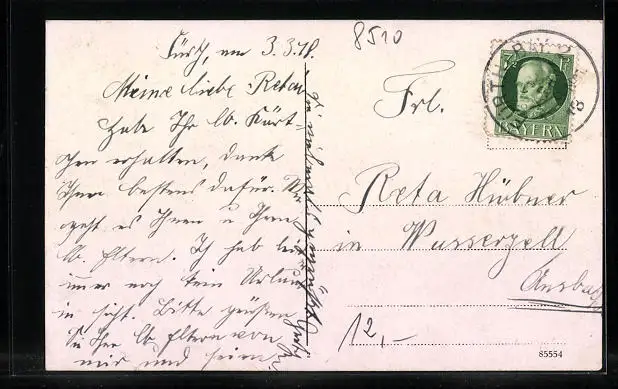 Fürth, am 3.3.18.
Meine liebe Reta
Habe Ihr lb. Kärt-
chen erhalten, danke
Ihnen bestens dafür. Wie
geht es Ihnen u Ihren
lb. Eltern. Ich hab leider
immer noch kein Urlaub
in sicht. Bitte grüßen
Sie Ihre lb. Eltern von
mir und seien
8510
BAYERN
Frl.
Reta Hübner
in Wasserzell
Ansbach
12,-
85554